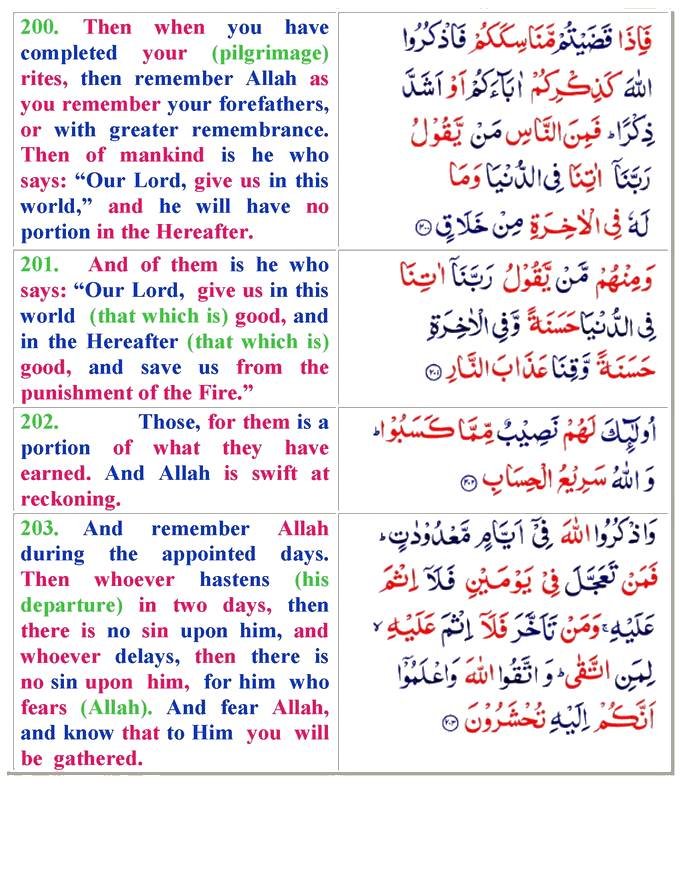 200. Then when you have
completed your (pilgrimage)
rites, then remember Allah as
you remember your forefathers,
or with greater remembrance.
Then of mankind is he who
says: “Our Lord, give us in this
world,” and he will have no
portion in the Hereafter.
فَاِذَا قَضَيْتُمْ مَّنَاسِكَكُمْ فَاذْكُرُوا
اللّٰهَ كَذِكْرِكُمْ اٰبَآءَكُمْ اَوْ اَشَدَّ
ذِكْرًا ؕ فَمِنَ النَّاسِ مَنْ يَّقُوْلُ
رَبَّنَاۤ اٰتِنَا فِى الدُّنْيَا وَمَا
لَهٗ فِى الْاٰخِرَةِ مِنْ خَلَاقٍ ۝۲۰۰
201. And of them is he who
says: “Our Lord, give us in this
world (that which is) good, and
in the Hereafter (that which is)
good, and save us from the
punishment of the Fire.”
وَمِنْهُمْ مَّنْ يَّقُوْلُ رَبَّنَاۤ اٰتِنَا
فِى الدُّنْيَا حَسَنَةً وَّفِى الْاٰخِرَةِ
حَسَنَةً وَّقِنَا عَذَابَ النَّارِ ۝۲۰۱
202. Those, for them is a
portion of what they have
earned. And Allah is swift at
reckoning.
اُولٰٓئِكَ لَهُمْ نَصِيْبٌ مِّمَّا كَسَبُوْا ؕ
وَ اللّٰهُ سَرِيْعُ الْحِسَابِ ۝۲۰۲
203. And remember Allah
during the appointed days.
Then whoever hastens (his
departure) in two days, then
there is no sin upon him, and
whoever delays, then there is
no sin upon him, for him who
fears (Allah). And fear Allah,
and know that to Him you will
be gathered.
وَاذْكُرُوا اللّٰهَ فِىْۤ اَيَّامٍ مَّعْدُوْدٰتٍ ؕ
فَمَنْ تَعَجَّلَ فِىْ يَوْمَيْنِ فَلَاۤ اِثْمَ
عَلَيْهِ ۚ وَمَنْ تَاَخَّرَ فَلَاۤ اِثْمَ عَلَيْهِ ۙ
لِمَنِ اتَّقٰى ؕ وَ اتَّقُوا اللّٰهَ وَاعْلَمُوْۤا
اَنَّكُمْ اِلَيْهِ تُحْشَرُوْنَ ۝۲۰۳